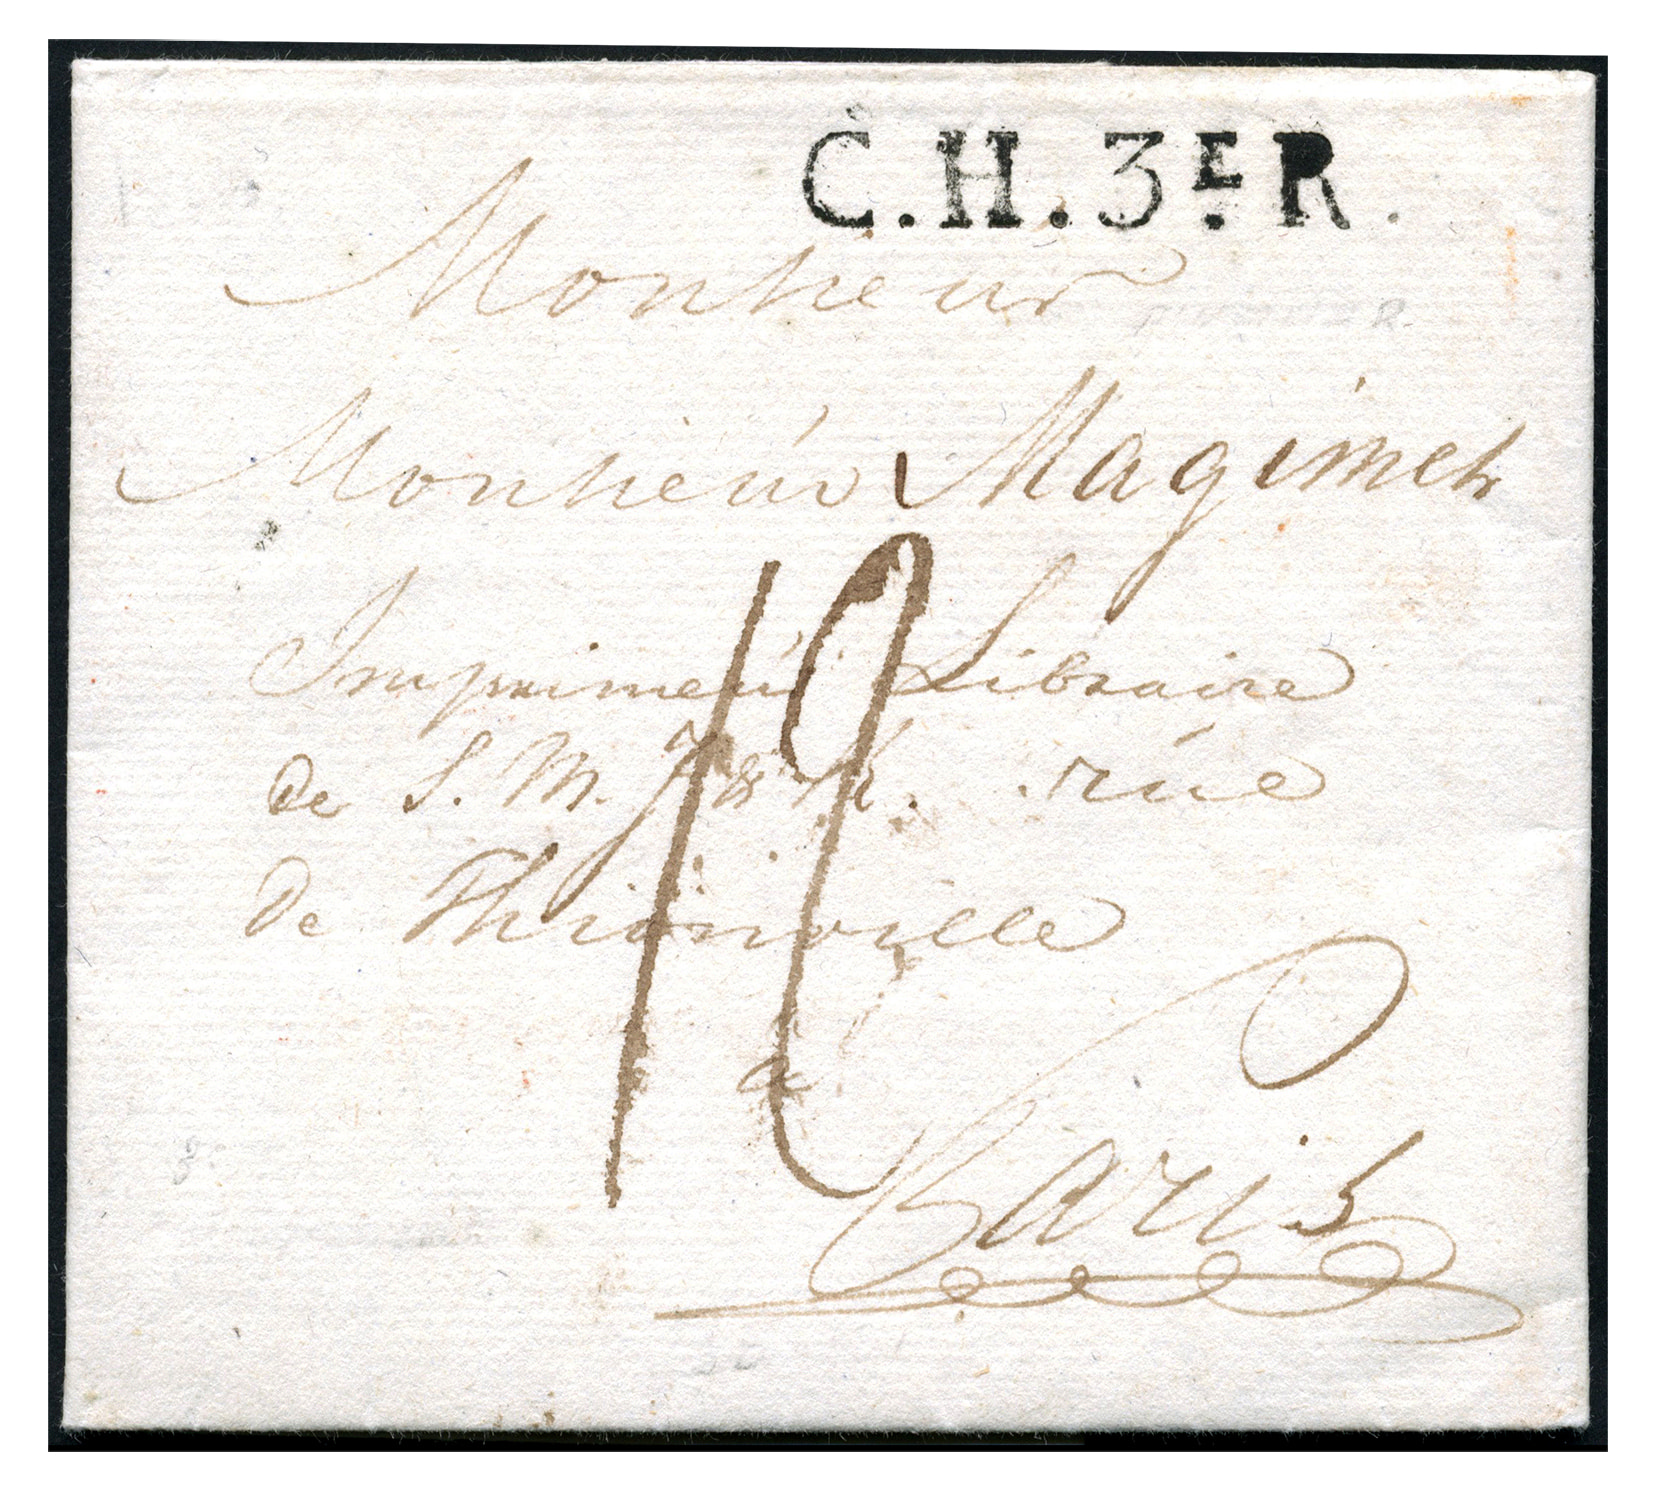 C.H.3E.R.
Monsieur
Monsieur Magimel
Imprimeur Libraire
de S. M. J. & R. rüe
de Thionville
12
a
Paris